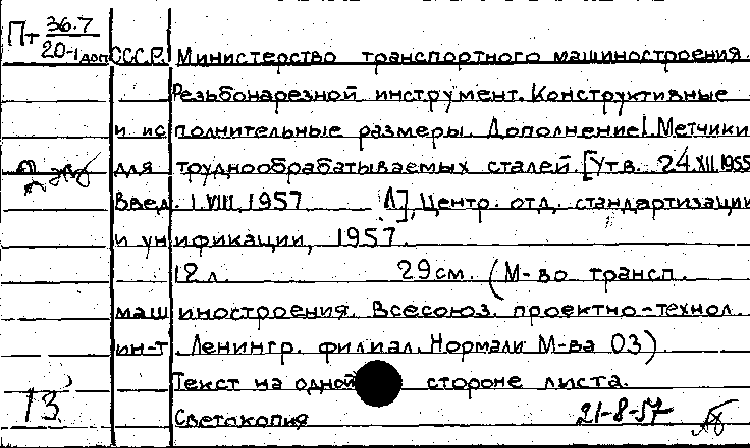 Пт 36.7
20-1 доп
С.С.С.Р. Министерство транспортного машиностроения.
Резьбонарезной инструмент. Конструктивные
и исполнительные размеры. Дополнение 1. Метчики
для труднообрабатываемых сталей. [Утв. 24.XII.1955
Введ. 1.VIII.1957 Л], Центр. отд. стандартизации
и унификации, 1957.
12 л. 29 см. (М-во трансп.
машиностроения. Всесоюз. проектно-технол.
ин-т. Ленингр. филиал. Нормали М-ва 03)
Текст на одной стороне листа.
13
Светокопия 21-8-57